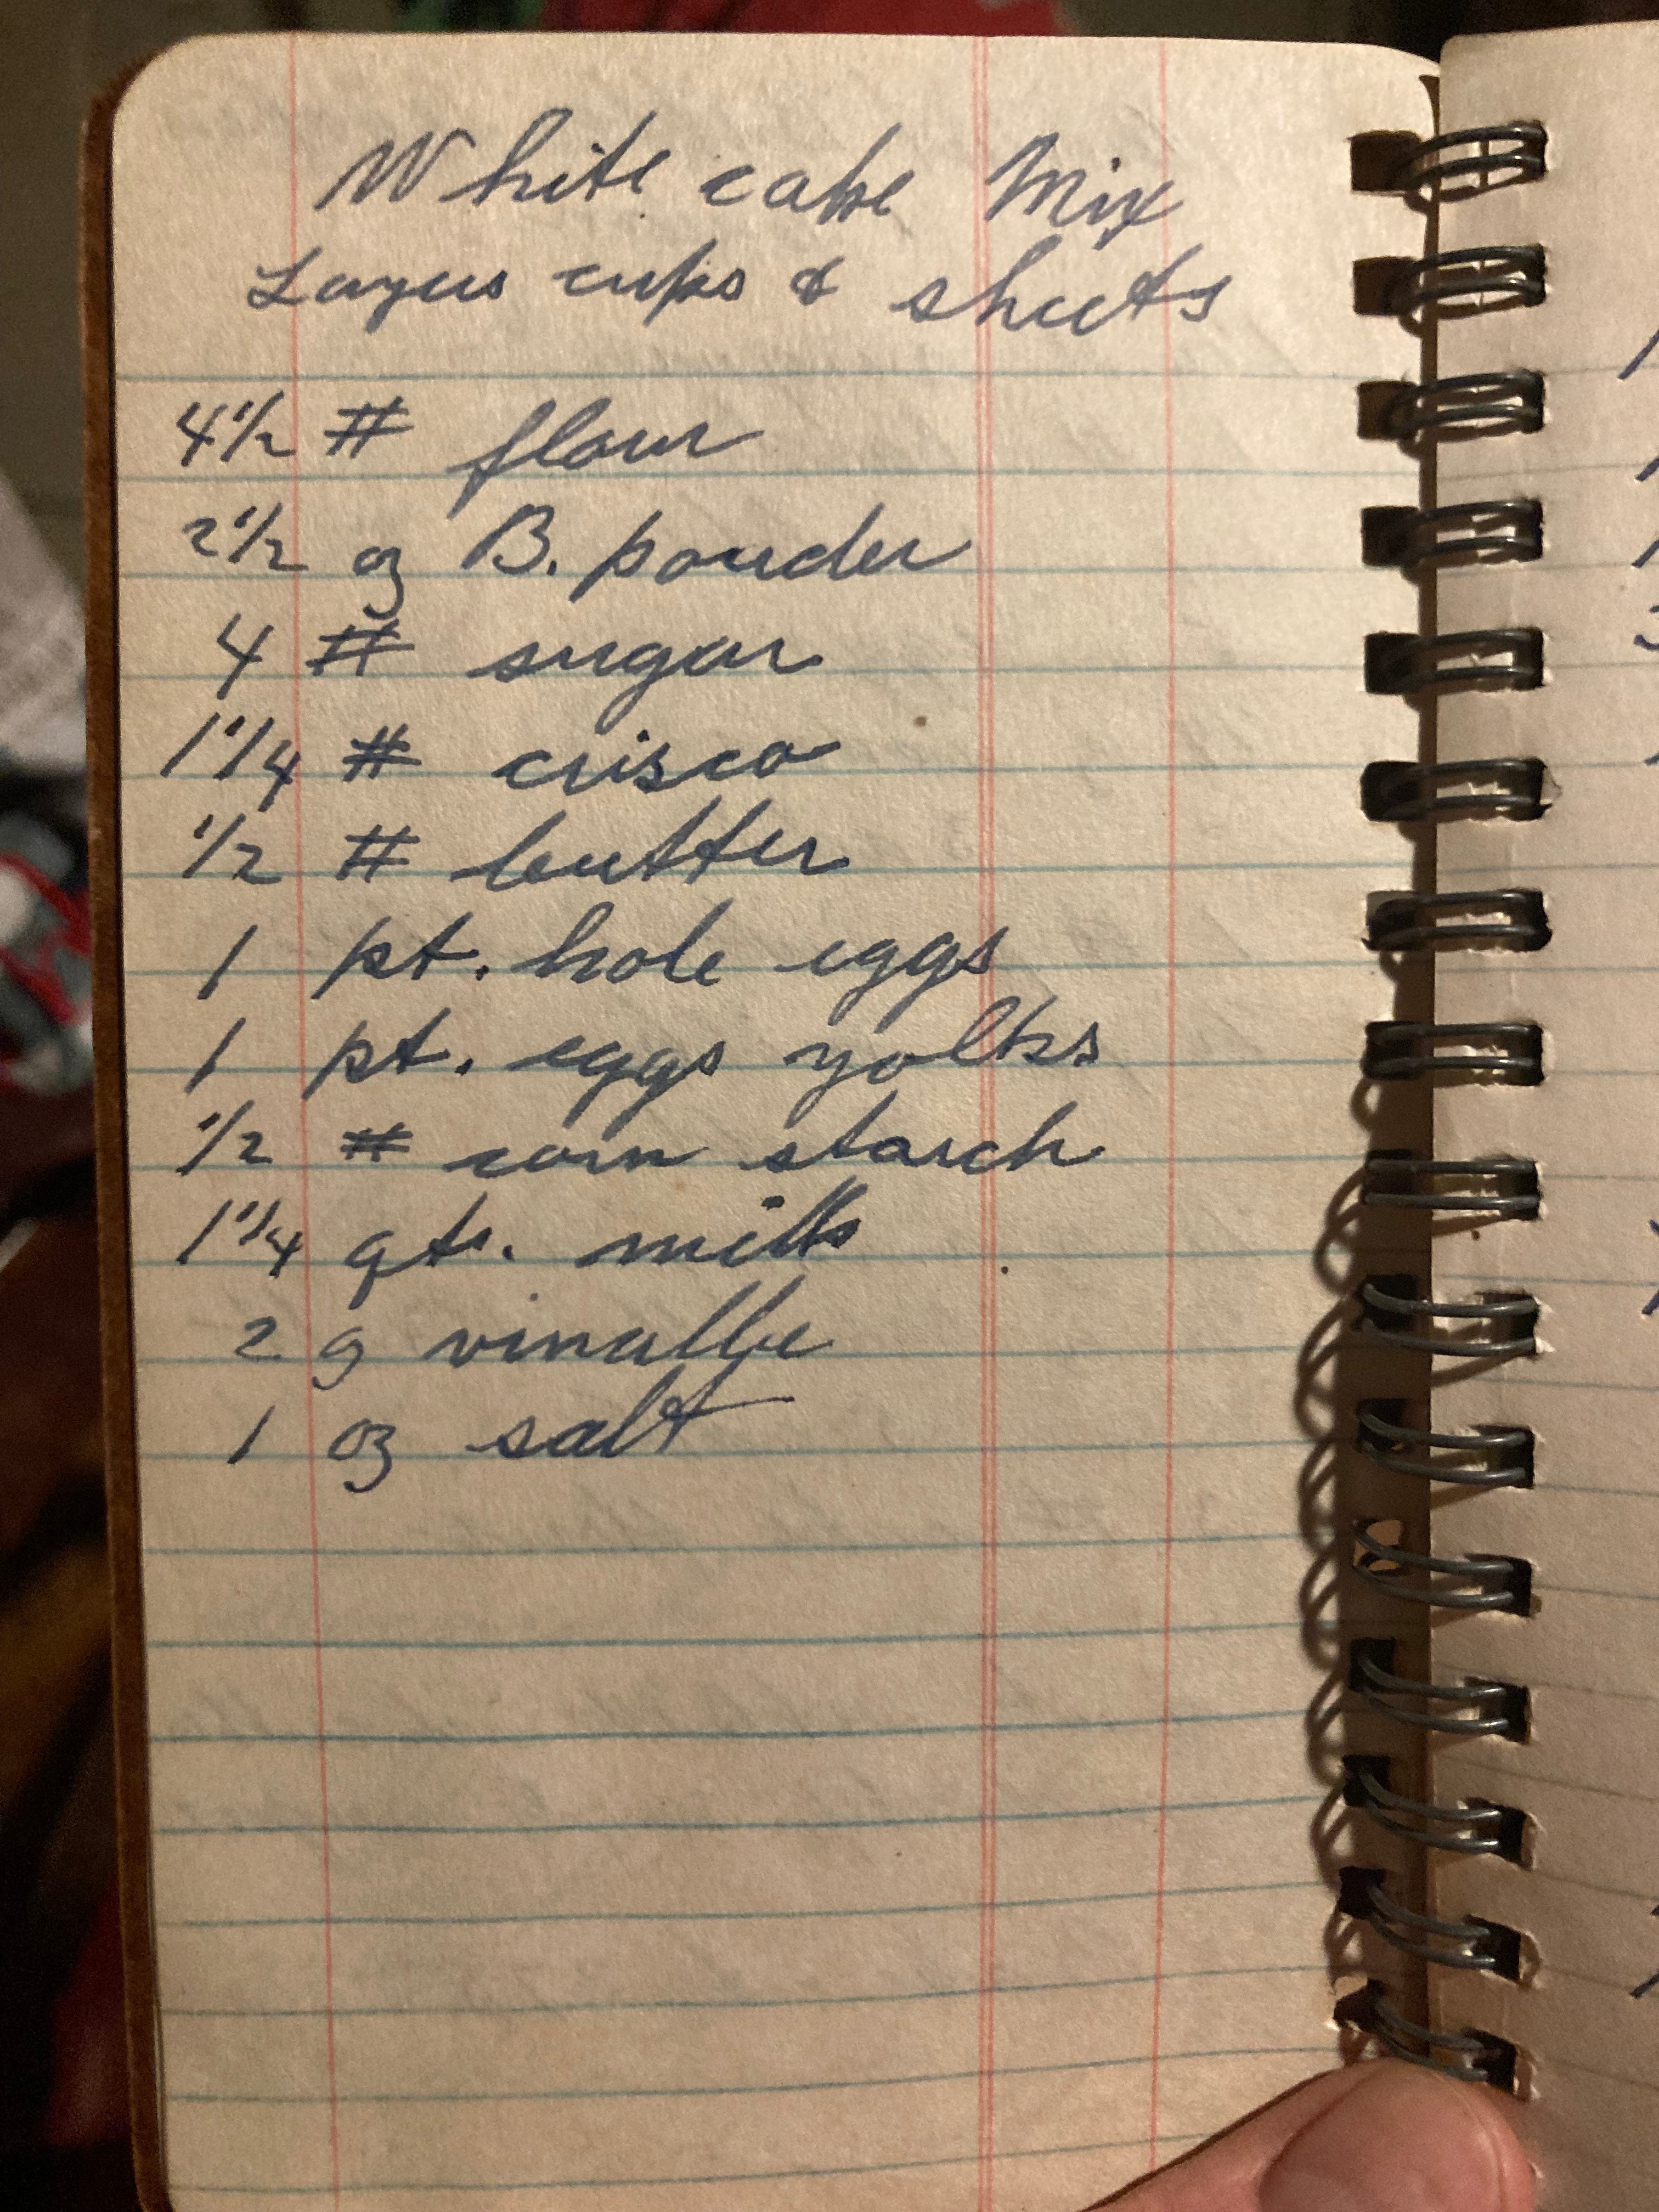 White cake Mix
Layers cups & sheets
4 1/2 # flour
2 1/2 oz B. powder
4 # sugar
1 1/4 # crisco
1/2 # butter
1 pt. hole eggs
1 pt. eggs yolks
1/2 # corn starch
1 1/4 qts. milk
2
1 oz salt